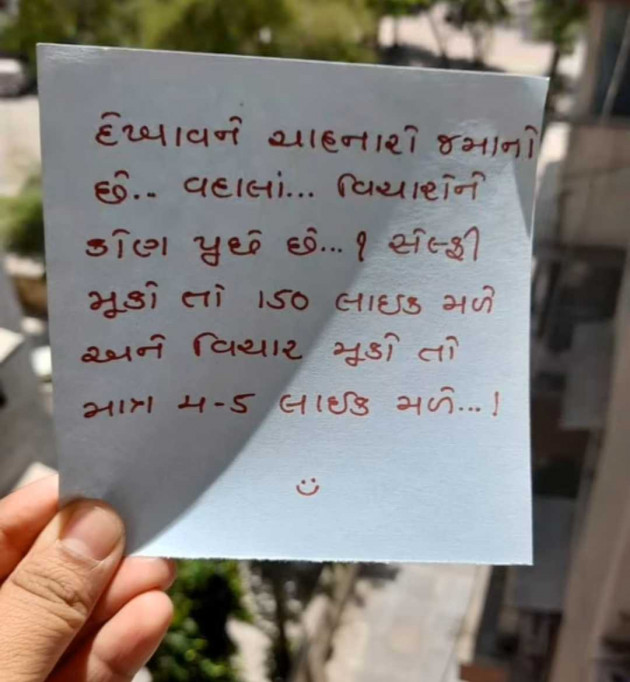 દેખાવને ચાહનારો જમાનો
છે.. વહાલાં... વિચારોને
કોણ પુછે છે...? સેલ્ફી
મૂકો તો 150 લાઇક મળે
અને વિચાર મૂકો તો
માત્ર 4-5 લાઈક મળે...!